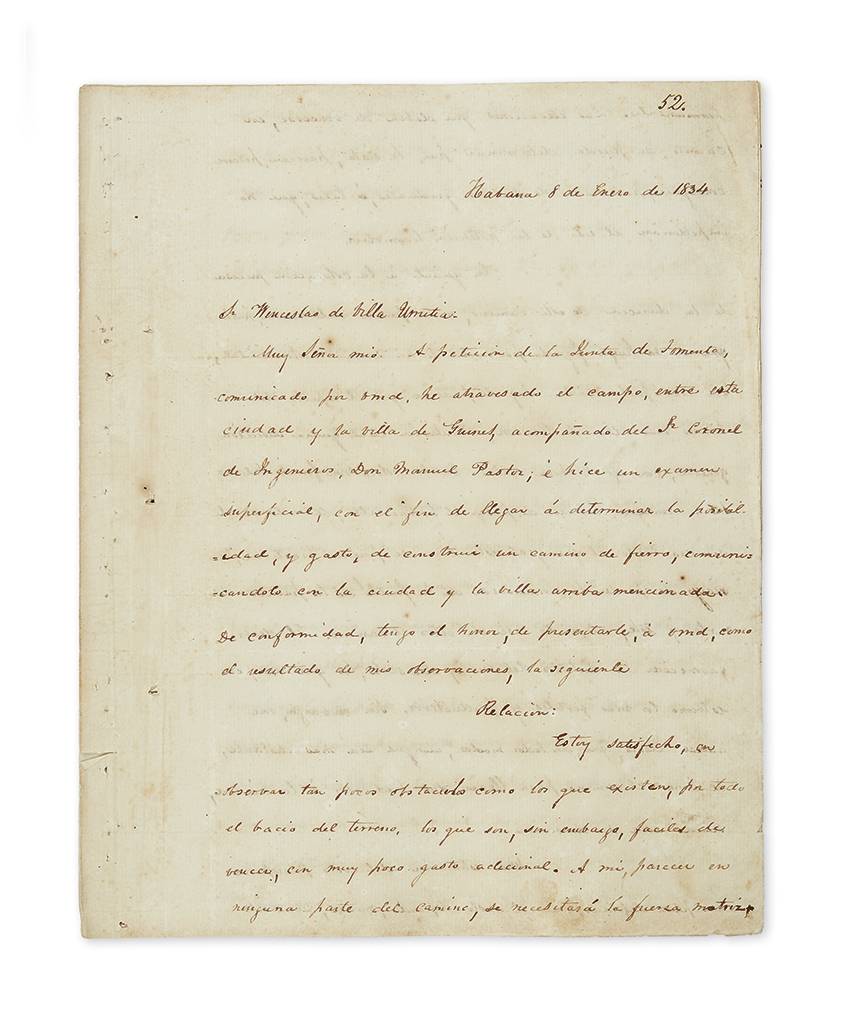 52.
Habana 8 de Enero de 1834
Sr Wenceslao de Villa Urrutia.
Muy Señor mio. A peticion de la Junta de Fomento,
comunicado por vmd, he atravesado el campo, entre esta
ciudad y la villa de Guines, acompañado del Sr Coronel
de Ingenieros, Don Manuel Pastor; é hice un examen
superficial, con el fin de llegar á determinar la posibil-
=idad, y gasto, de construir un camino de fierro, comuni=
=candolo con la ciudad y la villa arriba mencionada.
De conformidad, tengo el honor, de presentarle, a vmd, como
el resultado de mis observaciones, la siguiente
Relacion:
Estoy satisfecho, en
observar tan pocos obstaculos como los que existen, por todo
el bacio del terreno, los que son, sin embargo, faciles de
vencer, con muy poco gasto adicional. A mi, parecer en
ninguna parte del camino, se necesitará la fuersa motriz,